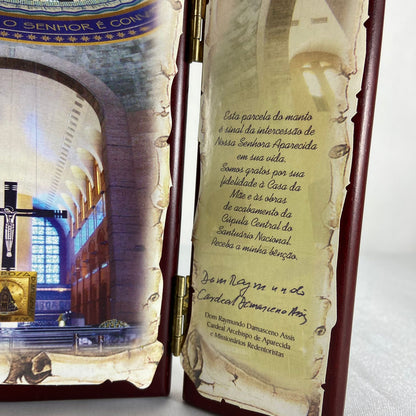 O SENHOR É CONV
Esta parcela do manto
é sinal da intercessão de
Nossa Senhora Aparecida
em sua vida.
Somos gratos por sua
fidelidade à Casa da
Mãe e às obras
de acabamento da
Cúpula Central do
Santuário Nacional.
Receba a minha bênção.
Dom Raymundo
Cardeal Damasceno Assis
Dom Raymundo Damasceno Assis
Cardeal Arcebispo de Aparecida
e Missionários Redentoristas